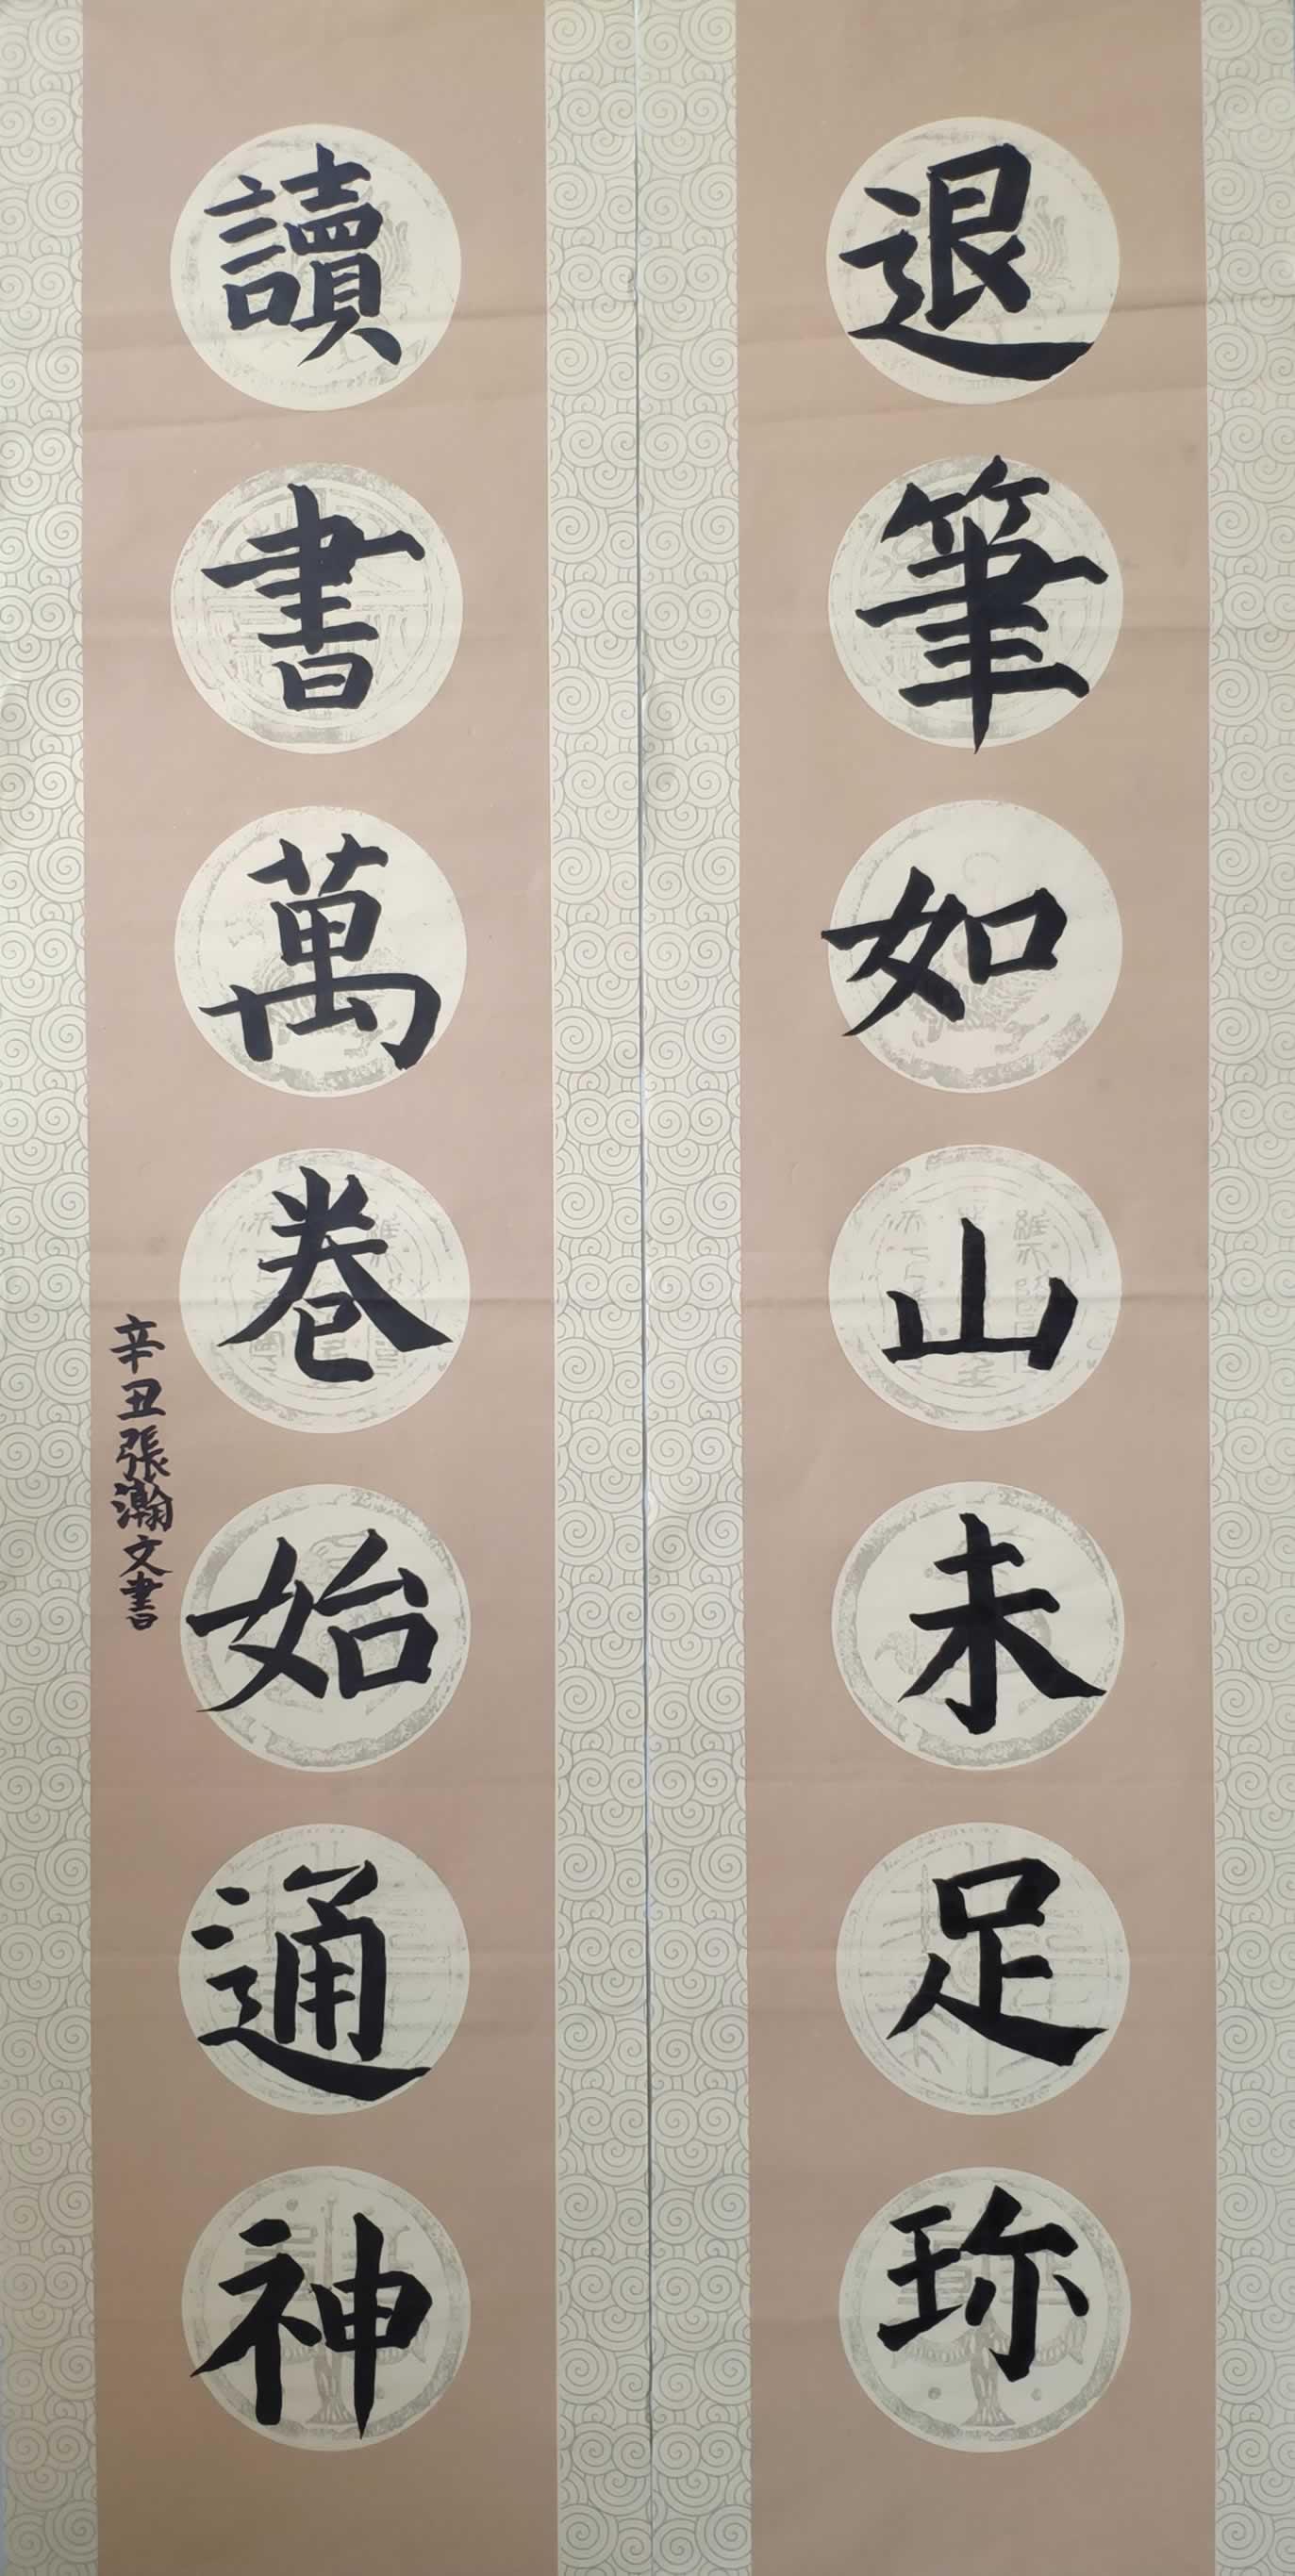 退筆如山未足珎
讀書萬卷始通神
辛丑張瀚文書